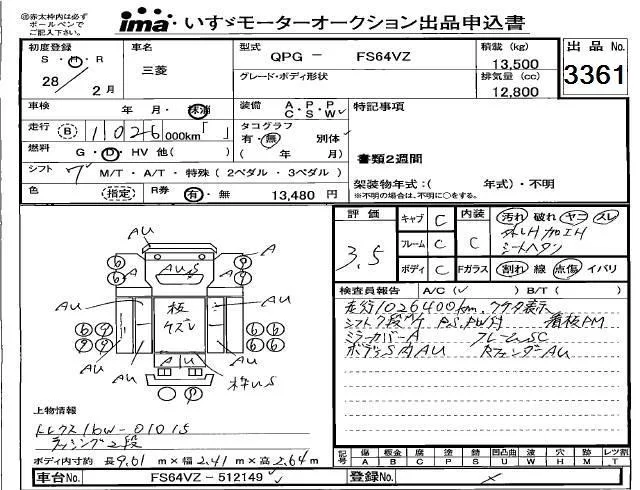 ※赤太枠内は必ず
ボールペンで
ご記入下さい。
ima いすゞモーターオークション出品申込書
初度登録 車名 型式 QPG - FS64VZ 積載 (kg) 13,500 出品No. 3361
S・H・R 28 / 2月 三菱 グレード・ボディ形状 排気量 (cc) 12,800
車検 年 月・抹消 装備 A・P・P C・S・W 特記事項
走行 (B) 11026,000km「 」 タコグラフ 有・無 別体
燃料 G・D・HV 他( ) ( 年 月) 書類2週間
シフト 7 M/T・A/T・特殊(2ペダル・3ペダル)
色 (指定) R券 有・無 13,480 円 架装物年式:( 年式)・不明
※不明の場合は、不明に○をする。
評価 3.5 キャブ C 内装 C 汚れ 破れ ヤニ スレ
外LH 加エH
フレーム C シートヘタリ
ボディ C Fガラス 割れ 線 点傷 イバリ
検査員報告 A/C( ) B/T( )
走行1026400km.
シフト7段M/T P.S.PW付 看板PM
ミラーカバーA フレームSC
ボデーS内AU RフェンダーAU
AU A
6 6 9 6
A AU.S A
AU AU AU
板 ケズレ
6 9 9 9 6 6 6 6
AU AU AU
枠US
9
上物情報
トレクス16W-01015
ラッシング2段
ボディ内寸約 長9.61 m×幅2.41 m×高2.64m
記号 傷 A 板金 B 腐 C 塗 P 錆 S 凹凸曲 U 波 W 穴 H 跡 M レツ割 T
車台No. FS64VZ-512149 登録No.